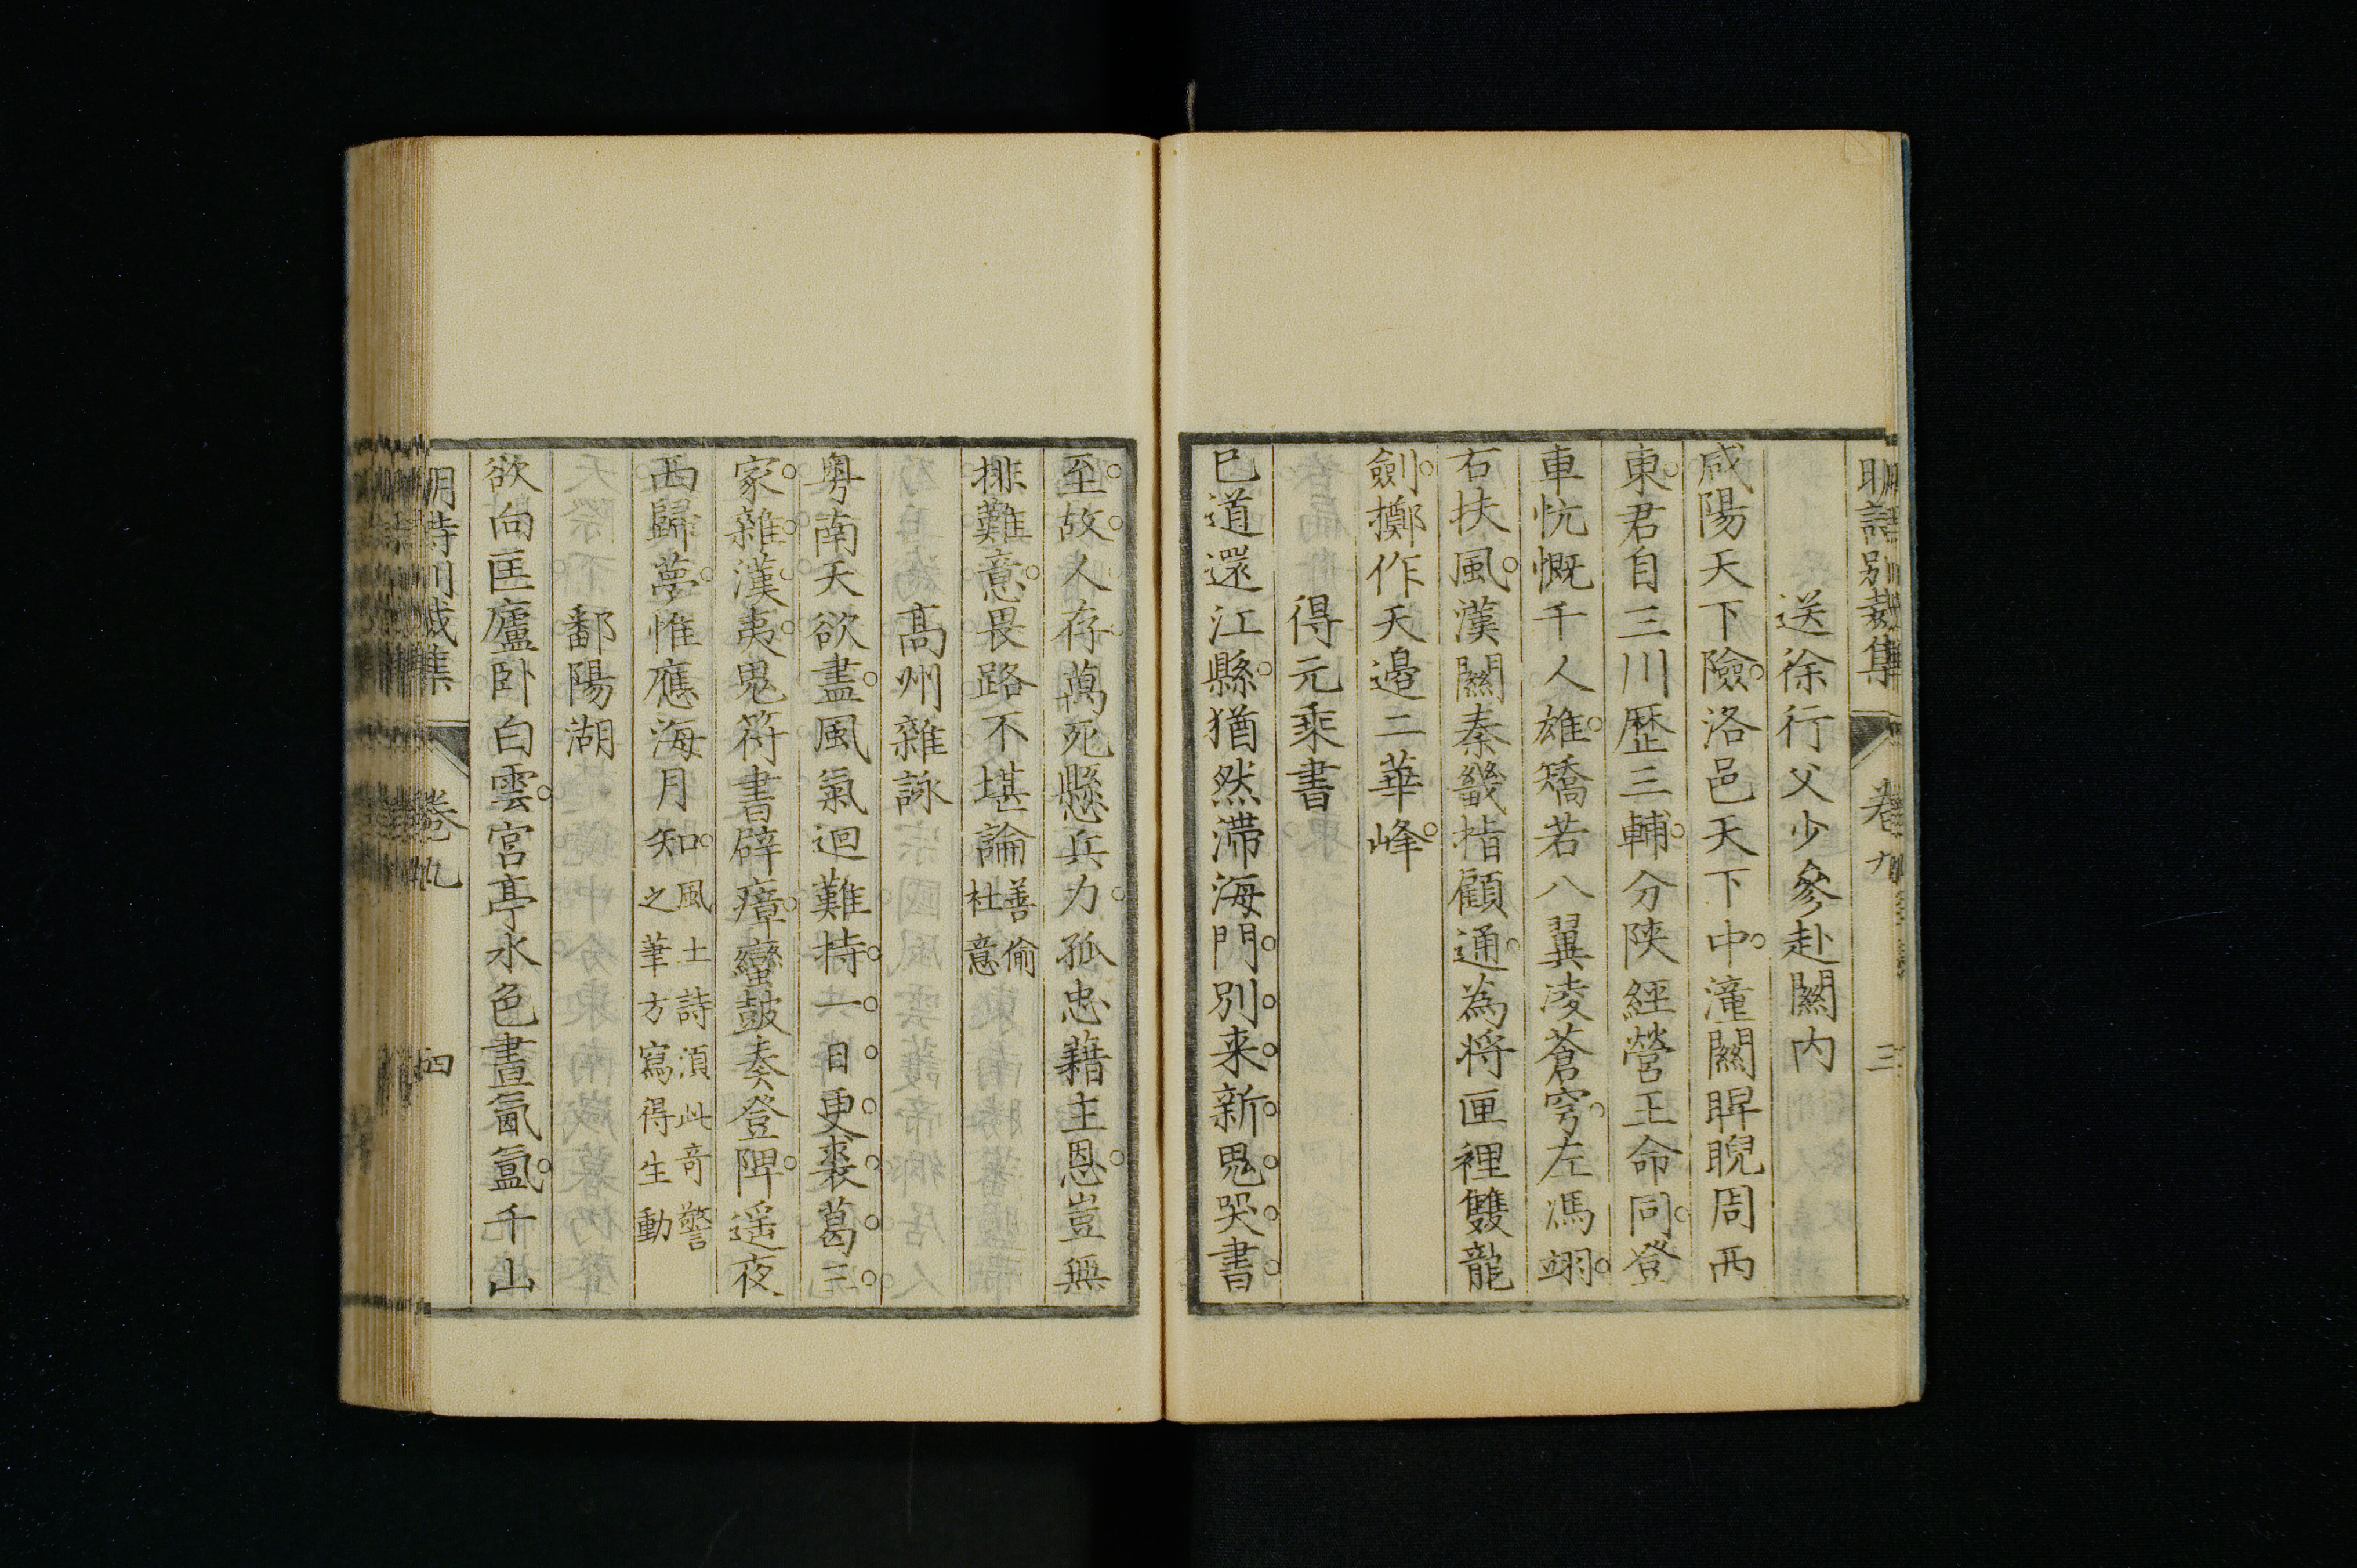 明詩別裁集 卷九 三
送徐行父少參赴關內
咸陽天下險洛邑天下中潼關睥睨周西
東君自三川歷三輔分陝經營王命同登
車忼慨千人雄矯若八翼凌蒼穹左馮翊
右扶風漢關秦畿指顧通為將匣裡雙龍
劍擲作天邊二華峰
得元乘書
已道還江縣猶然滯海門別来新鬼哭書
至故人存萬死懸兵力孤忠藉主恩豈無
排難意畏路不堪論善偷杜意
高州雜詠
粵南天欲盡風氣迴難持一日更裘葛三
家雜漢夷鬼符書辟瘴蠻鼓奏登陴遥夜
西歸夢惟應海月知風土詩湏此奇警之筆方寫得生動
鄱陽湖
欲向匡廬卧白雲宮亭水色晝氤氲千山
明詩別裁集 卷九 四